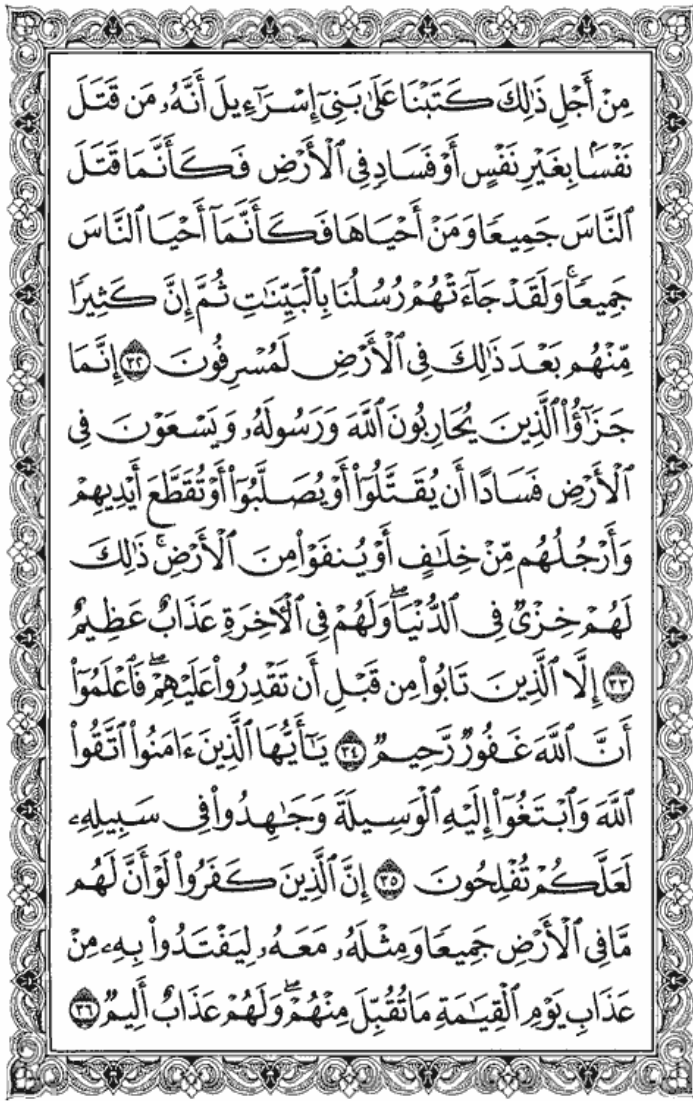 مِنْ أَجْلِ ذَٰلِكَ كَتَبْنَا عَلَىٰ بَنِىٓ إِسْرَٰٓءِيلَ أَنَّهُۥ مَن قَتَلَ
نَفْسًۢا بِغَيْرِ نَفْسٍ أَوْ فَسَادٍ فِى ٱلْأَرْضِ فَكَأَنَّمَا قَتَلَ
ٱلنَّاسَ جَمِيعًا وَمَنْ أَحْيَاهَا فَكَأَنَّمَآ أَحْيَا ٱلنَّاسَ
جَمِيعًا ۚ وَلَقَدْ جَآءَتْهُمْ رُسُلُنَا بِٱلْبَيِّنَٰتِ ثُمَّ إِنَّ كَثِيرًا
مِّنْهُم بَعْدَ ذَٰلِكَ فِى ٱلْأَرْضِ لَمُسْرِفُونَ ٣٢ إِنَّمَا
جَزَٰٓؤُا۟ ٱلَّذِينَ يُحَارِبُونَ ٱللَّهَ وَرَسُولَهُۥ وَيَسْعَوْنَ فِى
ٱلْأَرْضِ فَسَادًا أَن يُقَتَّلُوٓا۟ أَوْ يُصَلَّبُوٓا۟ أَوْ تُقَطَّعَ أَيْدِيهِمْ
وَأَرْجُلُهُم مِّنْ خِلَٰفٍ أَوْ يُنفَوْا۟ مِنَ ٱلْأَرْضِ ۚ ذَٰلِكَ
لَهُمْ خِزْىٌ فِى ٱلدُّنْيَا ۖ وَلَهُمْ فِى ٱلْءَاخِرَةِ عَذَابٌ عَظِيمٌ
٣٣ إِلَّا ٱلَّذِينَ تَابُوا۟ مِن قَبْلِ أَن تَقْدِرُوا۟ عَلَيْهِمْ ۖ فَٱعْلَمُوٓا۟
أَنَّ ٱللَّهَ غَفُورٌ رَّحِيمٌ ٣٤ يَٰٓأَيُّهَا ٱلَّذِينَ ءَامَنُوا۟ ٱتَّقُوا۟
ٱللَّهَ وَٱبْتَغُوٓا۟ إِلَيْهِ ٱلْوَسِيلَةَ وَجَٰهِدُوا۟ فِى سَبِيلِهِۦ
لَعَلَّكُمْ تُفْلِحُونَ ٣٥ إِنَّ ٱلَّذِينَ كَفَرُوا۟ لَوْ أَنَّ لَهُم
مَّا فِى ٱلْأَرْضِ جَمِيعًا وَمِثْلَهُۥ مَعَهُۥ لِيَفْتَدُوا۟ بِهِۦ مِنْ
عَذَابِ يَوْمِ ٱلْقِيَٰمَةِ مَا تُقُبِّلَ مِنْهُمْ ۖ وَلَهُمْ عَذَابٌ أَلِيمٌ ٣٦